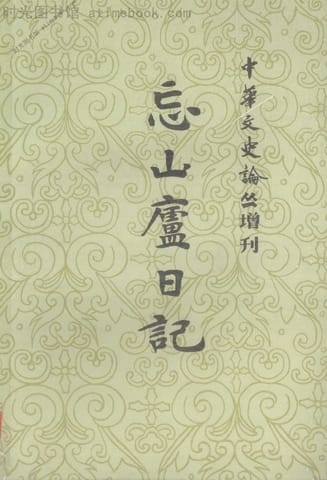 时光图书馆 atimebook.com
中華文史論丛增刊
忘山廬日記